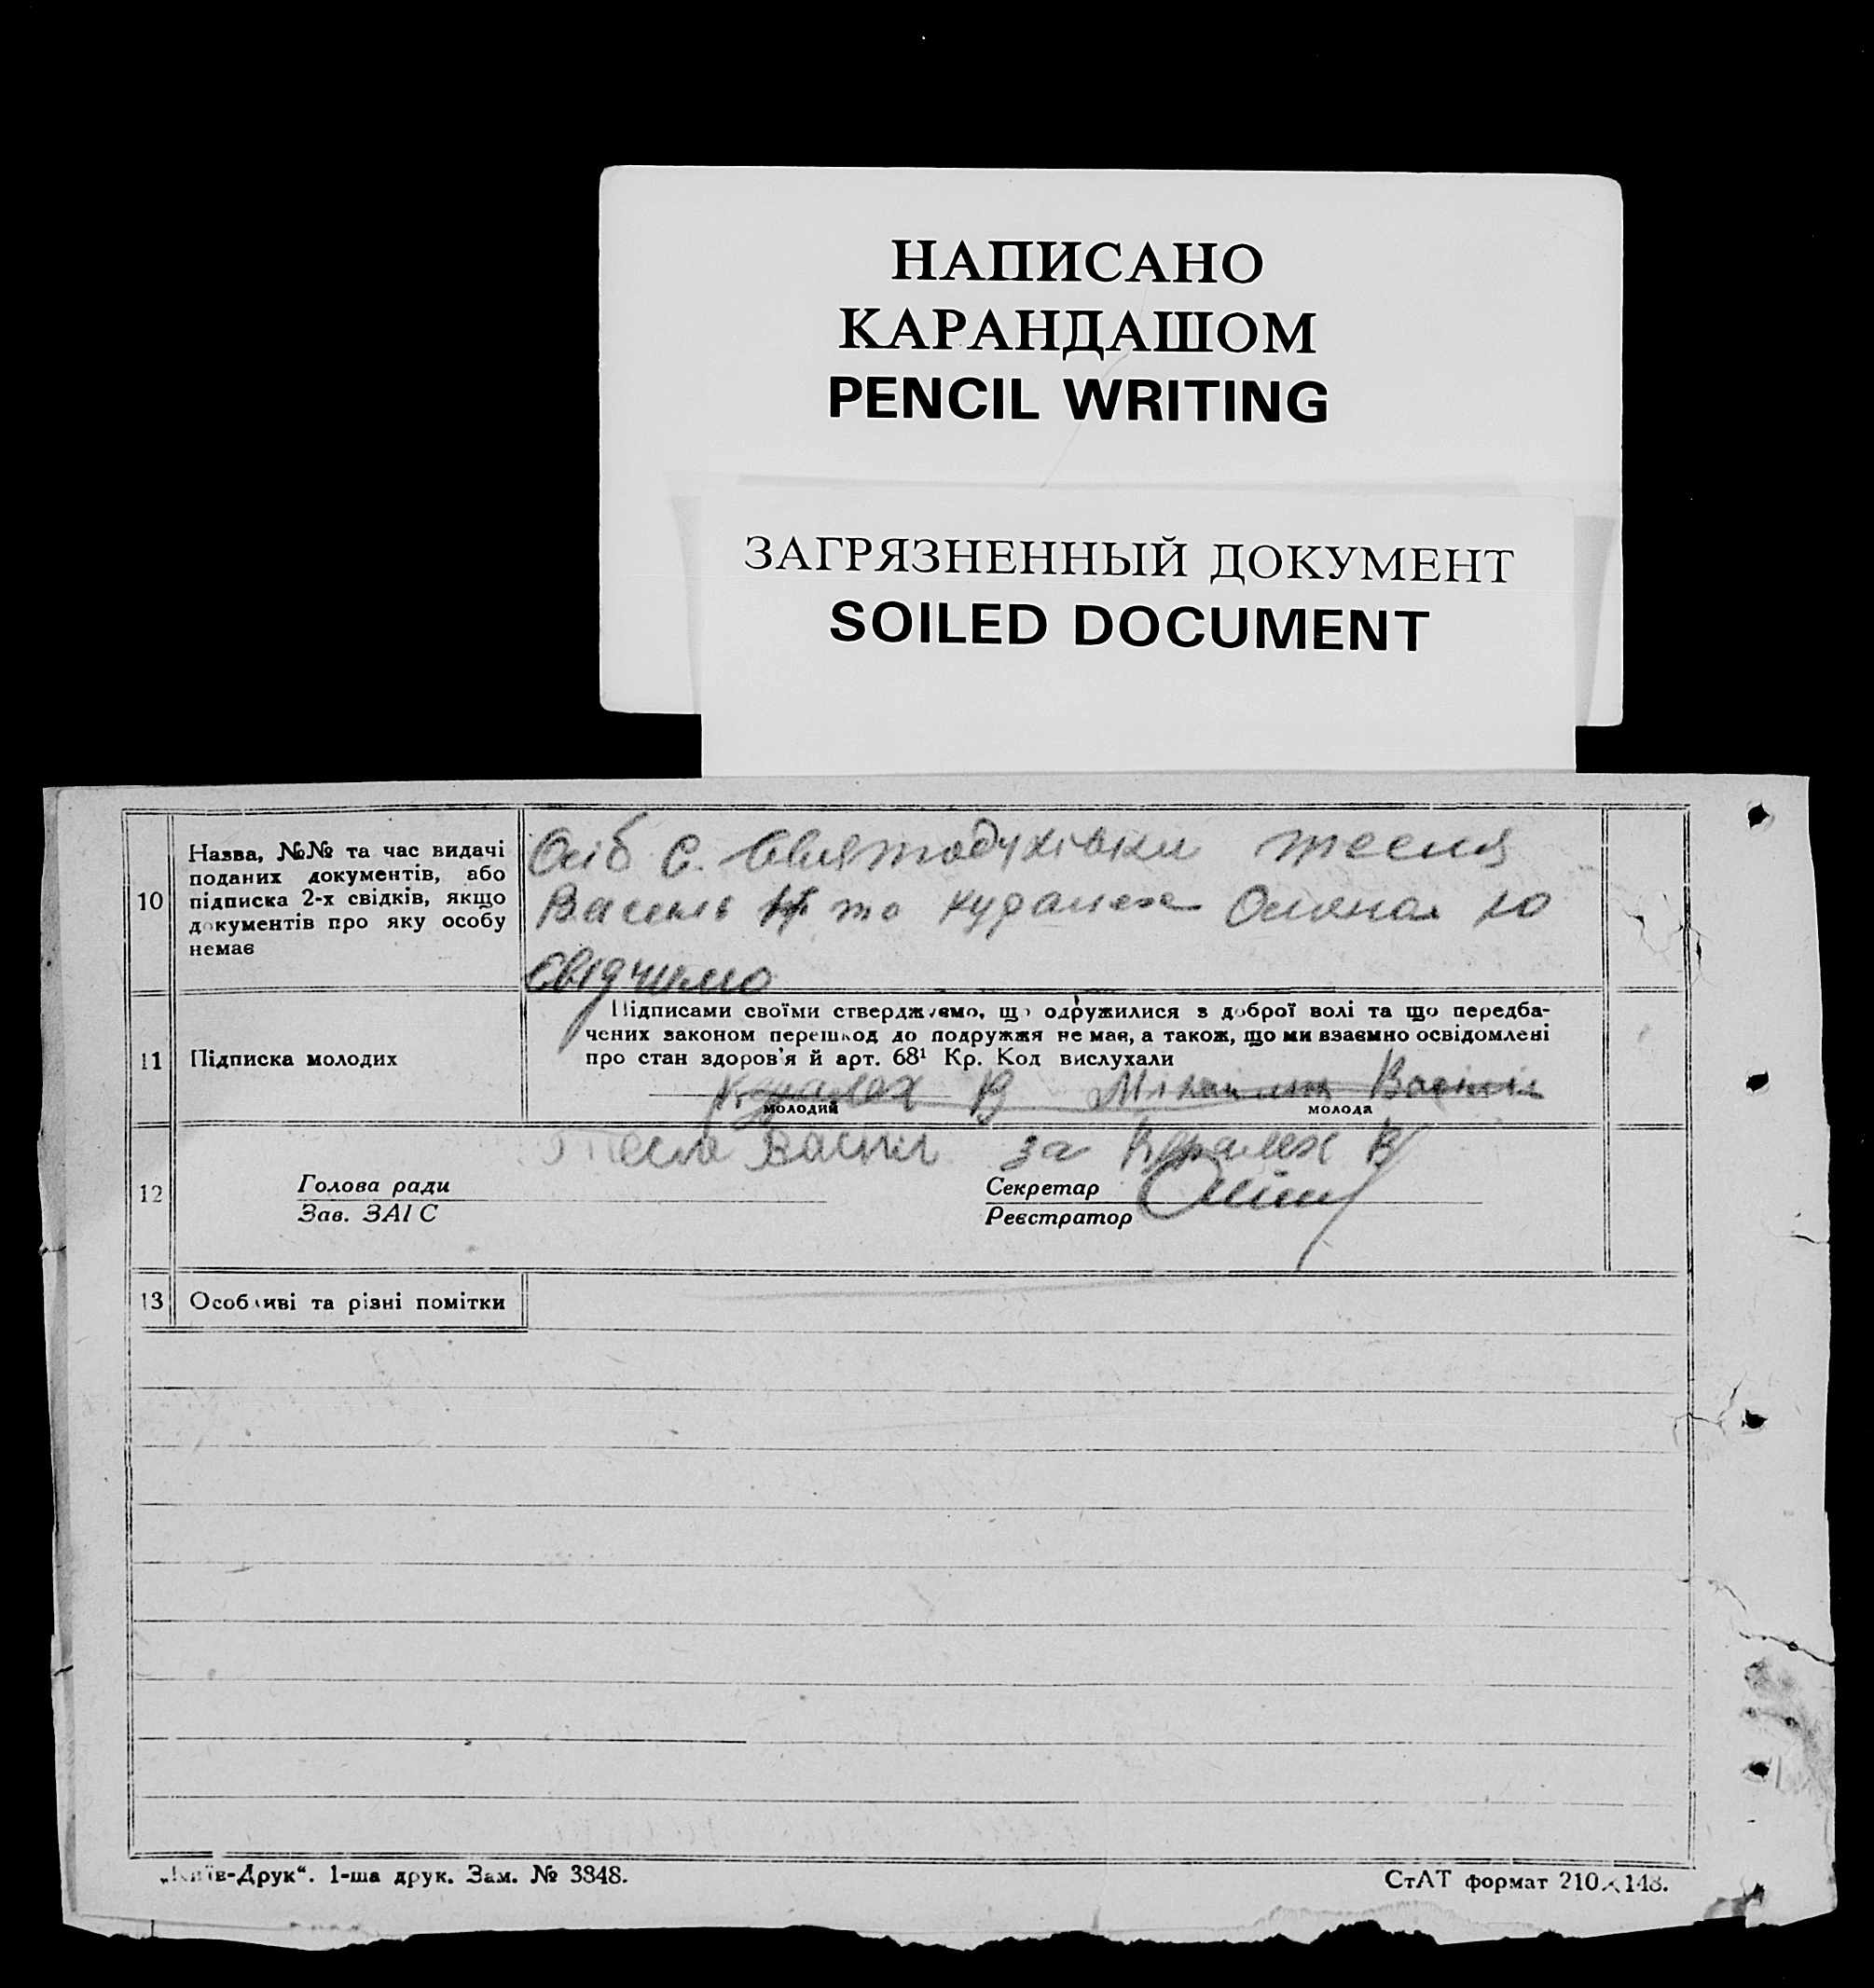 НАПИСАНО
КАРАНДАШОМ
PENCIL WRITING
ЗАГРЯЗНЕННЫЙ ДОКУМЕНТ
SOILED DOCUMENT
10
Назва, №№ та час видачі
поданих документів, або
підписка 2-х свідків, якщо
документів про яку особу
немає
Осіб с. Святодухівки тесля
Василь та
свідчимо
11
Підписка молодих
Підписами своїми стверджуємо, що одружилися з доброї волі та що передба-
чених законом перешкод до подружжя не має, а також, що ми взаємно освідомлені
про стан здоров'я й арт. 68¹ Кр. Код вислухали
В Василь
молодий
молода
Тесля Василь за В
12
Голова ради
Зав. ЗАГС
Секретар
Реєстратор
13
Особливі та різні помітки
„Київ-Друк“. 1-ша друк. Зам. № 3848.
СтАТ формат 210×148.